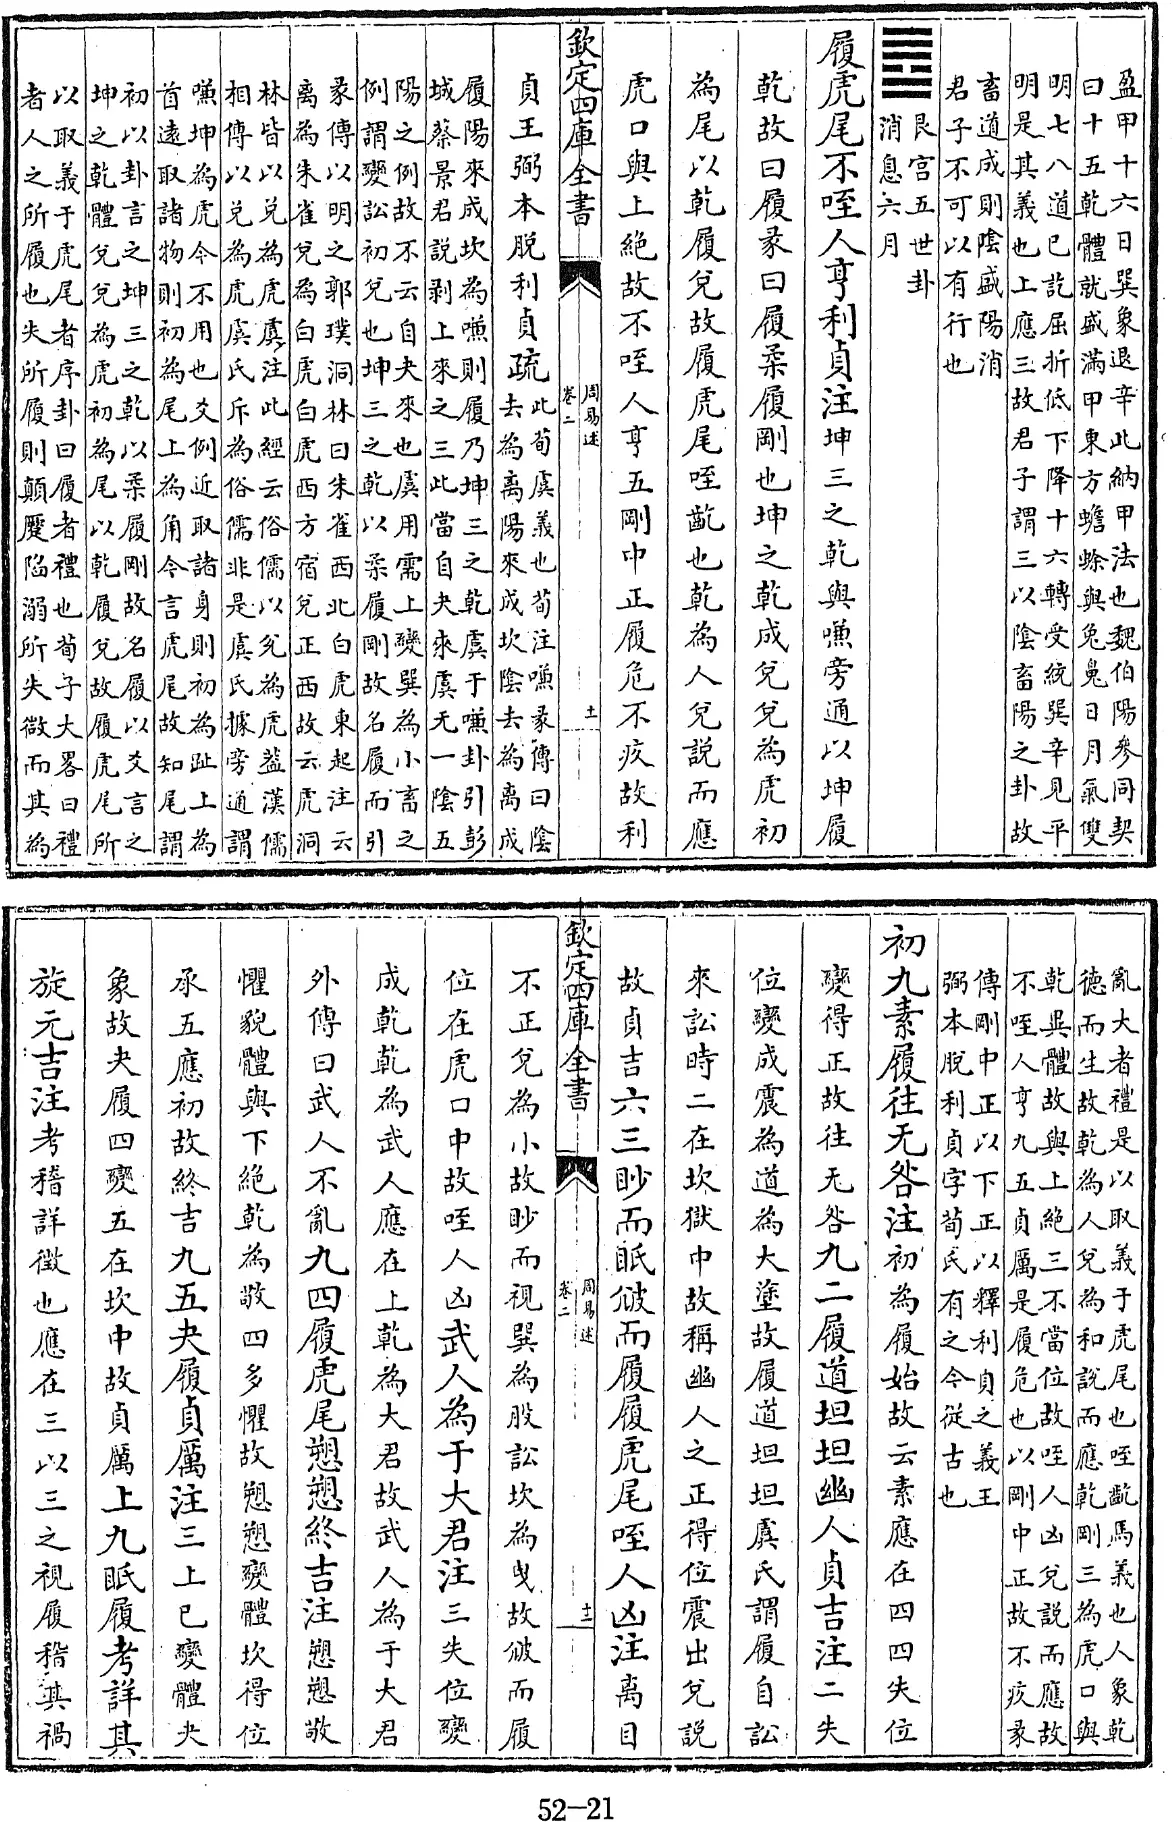 盈甲十六日巽象退辛此納甲法也魏伯陽參同契
曰十五乾體就盛滿甲東方蟾蜍與兔鬼日月氣雙
明七八道已訖屈折低下降十六轉受統巽辛見平
明是其義也上應三故君子謂三以陰畜陽之卦故
畜道成則陰盛陽消
君子不可以有行也
艮宮五世卦
消息六月
履虎尾不咥人亨利貞注坤三之乾與嗛旁通以坤履
乾故曰履彖曰履柔履剛也坤之乾成兌兌為虎初
為尾以乾履兌故履虎尾咥齕也乾為人兌説而應
虎口與上絶故不咥人亨五剛中正履危不疚故利
欽定四庫全書
周易述
卷二
十一
貞王弼本脱利貞疏此荀虞義也荀注嗛彖傳曰陰
去為离陽來成坎陰去為离成
履陽來成坎為嗛則履乃坤三之乾虞于嗛卦引彭
城蔡景君説剥上來之三此當自夬來虞无一陰五
陽之例故不云自夬來也虞用需上變巽為小畜之
例謂變訟初兌也坤三之乾以柔履剛故名履而引
彖傳以明之郭璞洞林曰朱雀西北白虎東起注云
离為朱雀兌為白虎白虎西方宿兌正西故云虎洞
林皆以兌為虎虞注此經云俗儒以兌為虎蓋漢儒
相傳以兌為虎虞氏斥為俗儒非是虞氏據旁通謂
嗛坤為虎今不用也爻例近取諸身則初為趾上為
首遠取諸物則初為尾上為角今言虎尾故知尾謂
初以卦言之坤三之乾以柔履剛故名履以爻言之
坤之乾體兌兌為虎初為尾以乾履兌故履虎尾所
以取義于虎尾者序卦曰履者禮也荀子大畧曰禮
者人之所履也失所履則顛蹷陷溺所失微而其為
亂大者禮是以取義于虎尾也咥齕馬義也人象乾
德而生故乾為人兌為和説而應乾剛三為虎口與
乾異體故與上絶三不當位故咥人凶兌説而應故
不咥人亨九五貞厲是履危也以剛中正故不疚彖
傳剛中正以下正以釋利貞之義王
弼本脱利貞字荀氏有之今從古也
初九素履往无咎注初為履始故云素應在四四失位
變得正故往无咎九二履道坦坦幽人貞吉注二失
位變成震為道為大塗故履道坦坦虞氏謂履自訟
來訟時二在坎獄中故稱幽人之正得位震出兌説
故貞吉六三眇而眂㱟而履履虎尾咥人凶注离目
欽定四庫全書
周易述
卷二
十二
不正兌為小故眇而視巽為股訟坎為曳故㱟而履
位在虎口中故咥人凶武人為于大君注三失位變
成乾乾為武人應在上乾為大君故武人為于大君
外傳曰武人不亂九四履虎尾愬愬終吉注愬愬敬
懼貌體與下絶乾為敬四多懼故愬愬變體坎得位
承五應初故終吉九五夬履貞厲注三上已變體夬
象故夬履四變五在坎中故貞厲上九眂履考詳其
旋元吉注考稽詳徵也應在三以三之視履稽其禍
52-21